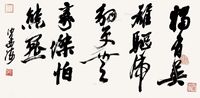 獨有英
雄驅虎
豹更無
豪傑怕
熊羆